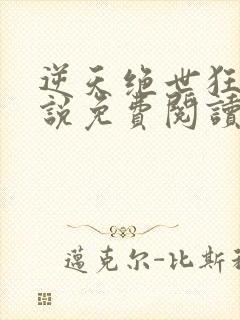 逆天绝世狂
說免費閱讀
邁克尔-比斯利